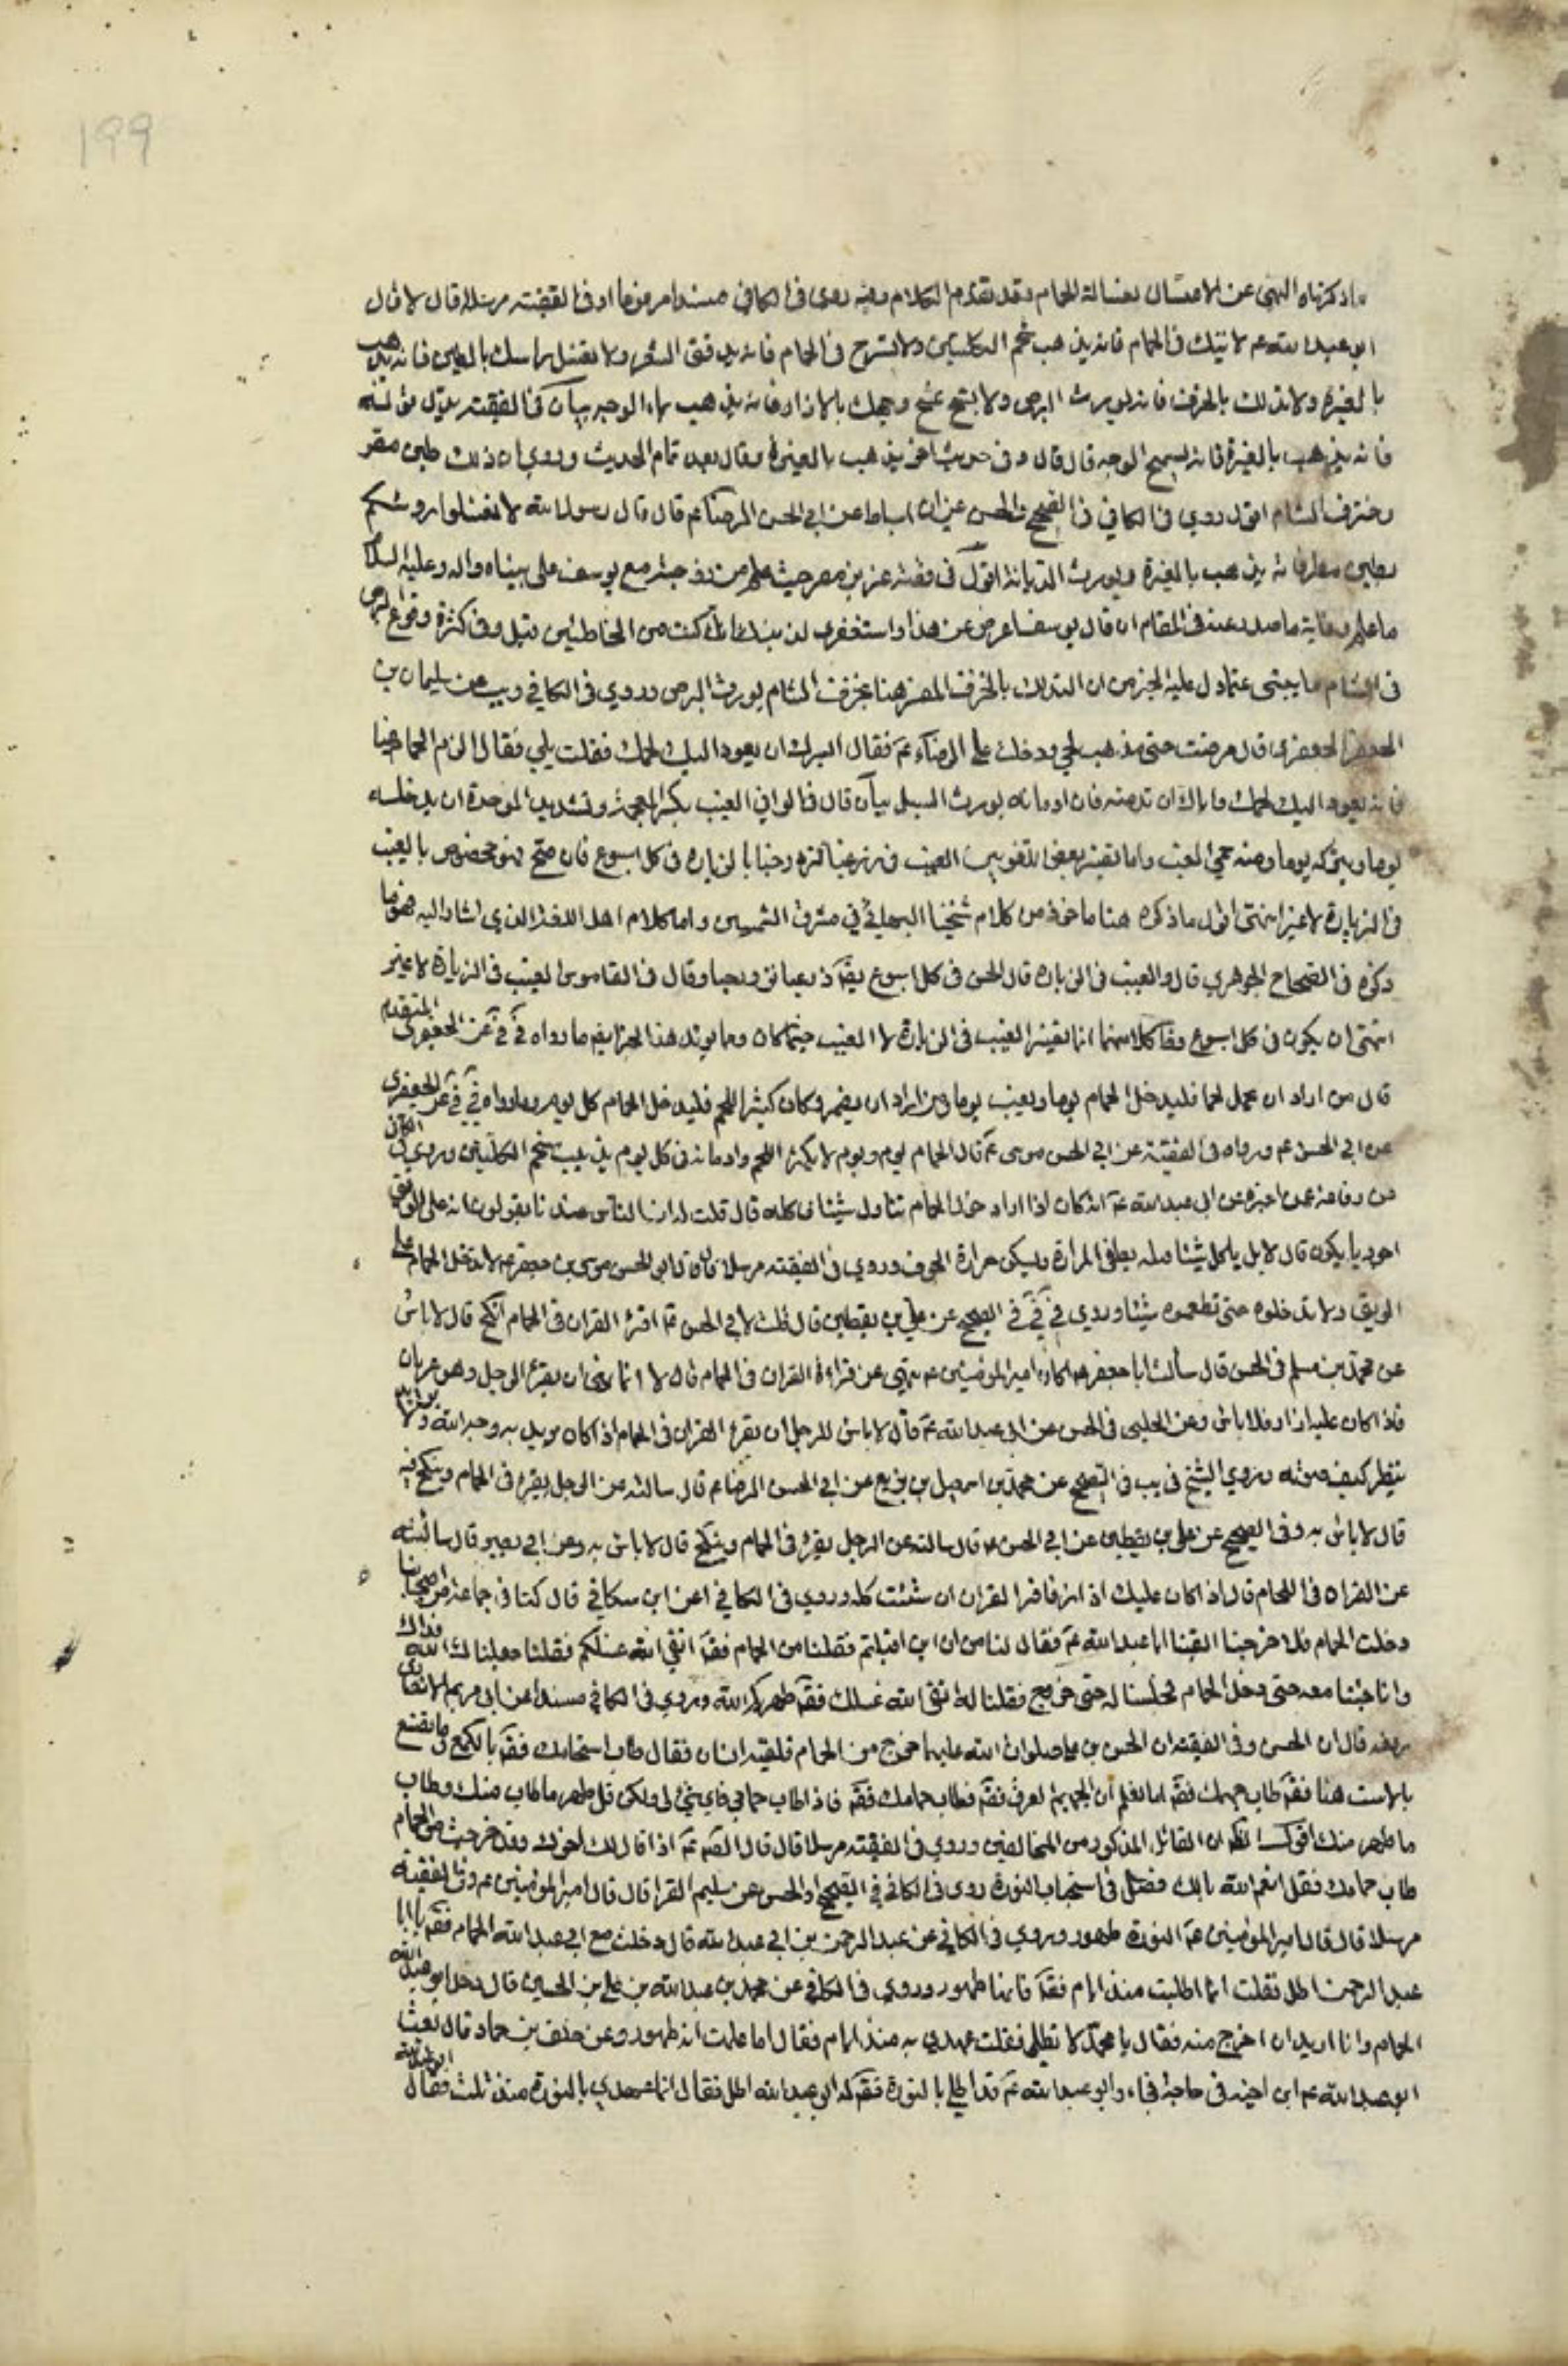 199
ما ذكرناه النهى عن الاغتسال بغسالة الحمام وقد تقدم الكلام وفيه روى فى الكافى مسندا مرفوعا او فى الفقيه مرسلا قال لا قال
ابو عبد الله عم لا تتك فى الحمام فانه يذهب شحم الكليتين ولا تسرح فى الحمام فانه يرقق الشعر ولا تغسل راسك بالطين فانه يذهب
بالغيرة ولا تدلك بالخزف فانه يورث البرص ولا تمسح وجهك بالازار فانه يذهب بماء الوجه بيان فى الفقيه بدل قوله
فانه يذهب بالغيرة فانه يسمج الوجه قال قال وفى حديث اخر يذهب بالغيرة وقال بعد تمام الحديث وروى ان ذلك طين مصر
وخزف الشام اقول روى فى الكافى فى الصحيح والحسن عن ابن اسباط عن ابى الحسن الرضا عم قال قال رسول الله لا تغسلوا رؤسكم
بطين مصر فانه يذهب بالغيرة ويورث الدياثة اقول فى قصة عزيز مصر حيث علم من زوجته مع يوسف على نبيناه واله وعليه السلام
ما علم وغاية ما صدر عنه فى المقام ان قال يوسف اعرض عن هذا واستغفرى لذنبك انك كنت من الخاطئين وفى كثرة وقوع البرص
فى الشام ما يدل عليه الخبر من ان التدلك بالخزف المفسر هنا بخزف الشام يورث البرص وروى فى الكافى ويب عن سليمان بن
الجعفرى قال مرضت حتى ذهب لحمى ودخلت على الرضا عم فقال ايسرك ان يعود اليك لحمك فقلت بلى فقال الزم الحمام غبا
فانه يعود اليك لحمك واياك ان تدمنه فان ادمانه يورث السل بيان قال فى الوافى الغب بكسر المعجمة وتشديد الموحدة ان يدخله
يوما ويتركه يوما ومنه حمى الغب واما تفسير بعض اللغويين الغب فى زر غبا تزدد حبا بالزيارة فى كل اسبوع فان صح فهو مخصوص بالغب
فى الزيارة لا غير انتهى اقول ما ذكره هنا ماخوذ من كلام شيخنا البهائى فى مشرق الشمسين واما كلام اهل اللغة الذى اشار اليه فهو ما
ذكره فى الصحاح الجوهرى قال والغب فى الزيارة قال الحسن فى كل اسبوع يقال زر غبا تزدد حبا وقال فى القاموس الغب فى الزيارة لا غير
انتهى ان يكون فى كل اسبوع وفى كلامهما انما تفسير الغب فى الزيارة لا الغب حيثما كان ومما يؤيد هذا الخبر ايضا ما رواه فى عن الجعفرى المتقدم
قال من اراد ان يحمل لحما فليدخل الحمام يوما ويغب يوما ومن اراد ان يضمر وكان كثير اللحم فليدخل الحمام كل يوم وما رواه فى عن الجعفرى
عن ابى الحسن عم ورواه فى الفقيه عن ابى الحسن موسى عم قال الحمام يوم ويوم لا يكثر اللحم وادمانه فى كل يوم يذيب شحم الكليتين وروى فى الكافى
عن رفاعة عمن اخبره عن ابى عبد الله عم انه كان اذا اراد دخول الحمام تناول شيئا فاكله قال قلت له ان الناس عندنا يقولون انه على الريق
اجود ما يكون قال لا بل ياكل شيئا قبله يطفى المرارة ويسكن حرارة الجوف وروى فى الفقيه مرسلا قال قال ابى الحسن موسى بن جعفر عم لا تدخل الحمام على
الريق ولا تدخلوه حتى تطعموه شيئا وروى فى فى الصحيح عن على بن يقطين قال قلت لابى الحسن عم اقرء القران فى الحمام انكح قال لا باس
عن محمد بن مسلم فى الحسن قال سالت ابا جعفر عم اكان امير المؤمنين عم ينهى عن قراءة القران فى الحمام قال لا انما نهى ان يقرء الرجل وهو عريان
فاذا كان عليه ازار فلا باس وعن الحلبى فى الحسن عن ابى عبد الله عم قال لا باس للرجل ان يقرء القران فى الحمام اذا كان يريد به وجه الله ولا يريد
ينظر كيف صوته وروى الشيخ فى يب فى الصحيح عن محمد بن اسمعيل بن بزيع عن ابى الحسن الرضا عم قال سالته عن الرجل يقرء فى الحمام وينكح فيه
قال لا باس به وفى الصحيح عن على بن يقطين عن ابى الحسن عم قال سالته عن الرجل يقرء فى الحمام وينكح قال لا باس به وعن ابى بصير قال سالته
عن القراءة فى الحمام قال اذا كان عليك ازار فاقرا القران ان شئت كله وروى فى الكافى عن ابن مسكان قال كنا فى جماعة من اصحابنا
دخلت الحمام فلما خرجنا لقينا ابا عبد الله عم فقال لنا من اين اقبلتم فقلنا من الحمام فقال انقى الله غسلكم فقلنا جعلنا الله فداك
وانا جئنا معه حتى دخل الحمام فجلسنا له حتى خرج فقلنا له انقى الله غسلك فقال طهركم الله وروى فى الكافى مسندا عن ابى مريم الانصارى
رفعه قال ان الحسن وفى الفقيه ان الحسن بن على صلوات الله عليهما خرج من الحمام فلقيه انسان فقال طاب استحمامك فقال يا لكع وما تصنع
بالاست هنا فقال طاب حميمك فقال اما تعلم ان الحميم العرق فقال فطاب حمامك فقال فاذا طاب حمامى فاى شئ لى ولكن قل طهر ما طاب منك وطاب
ما طهر منك اقول الظاهر ان القائل المذكور من المخالفين وروى فى الفقيه مرسلا قال قال الصادق عم اذا قال لك اخوك وقد خرجت من الحمام
طاب حمامك فقل انعم الله بالك فصل فى استحباب النورة روى فى الكافى فى الصحيح او الحسن عن سليم الفرا قال قال امير المؤمنين عم وفى الفقيه
مرسلا قال قال امير المؤمنين عم النورة طهور وروى فى الكافى عن عبد الرحمن بن ابى عبد الله قال دخلت مع ابى عبد الله الحمام فقال يا
عبد الرحمن اطل فقلت انما اطليت منذ ايام فقال فانها طهور وروى فى الكافى عن محمد بن عبد الله بن على بن الحسين قال دخل ابو عبد الله
الحمام وانا اريد ان اخرج منه فقال يا محمد الا تطلى فقلت عهدى به منذ ايام فقال اما علمت انه طهور وعن خلف بن حماد قال بعث
ابو عبد الله عم ابن اخيه فى حاجة فجاء وابو عبد الله عم قد اطلى بالنورة فقال له ابو عبد الله اطل فقال انما عهدى بالنورة منذ ثلث فقال ابو عبد الله